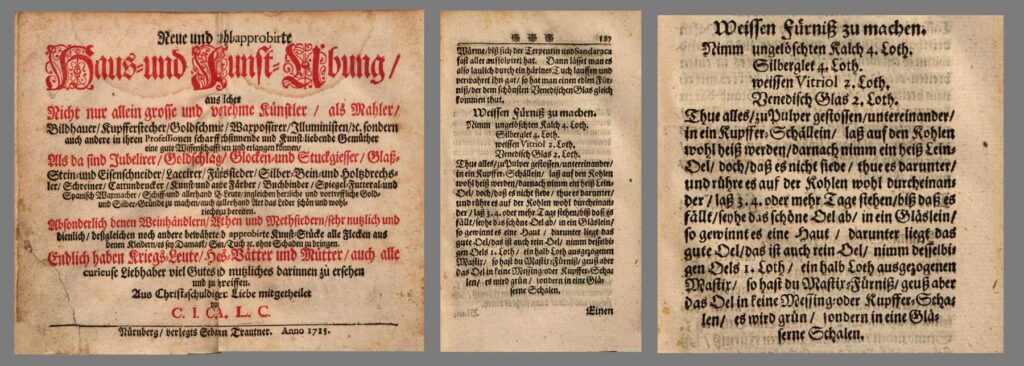 Neue und approbirte
Haus- und Kunst-Ubung/
aus
Nicht nur allein grosse und Künstler / als Mahler/
Bildhauer / Kupfferstecher / Goldschmir / Wappossirer / Illuministen / ꝛc. sondern
auch andere in ihren Professionen scharff sinnende und Kunst-liebende Gemüther
eine gute Wissenschafft und erlangen können/
Als da sind Jubelirer / Goldschlag / Glocken- und Stuckgiesser / Glaß-
Stein- und Eisenschneider / Laccirer / Fürßsieder / Silber- Bein- und Holtzdrechs-
ler / Schreiner / Cattundrucker / Kunst- und Färber / Buchbinder / Spiegel-Futteral- und
Spanisch Wax macher / Schiff- und allerhand Leute / ingleichen herrliche und vortreffliche Gold-
und Silber-Gründe zu machen / auch allerhand Art das Leder schön und wohl-
riechend zu bereiten.
Absonderlich denen Weinhändlern / und Methsiedern / sehr nutzlich und
dienlich / deßgleichen noch andere bewährte approbirte Kunst-Stücke alle Flecken aus
denen Kleidern / es sey Damast / Tuch ꝛc. ohne Schaden zu bringen.
Endlich haben Kriegs-Leute / Vätter und Mütter / auch alle
curieuse Liebhaber viel Gutes nutzliches darinnen zu ersehen
und zu
Aus Christ-schuldiger Liebe mitgetheilet
C. I. L. C.
Nürnberg / verlegts Trautner. Anno 1715.
187
Wärme / biß sich der Terpentin und Sandaraca
fast aller Dann lässet man es
also laulich durch ein härines Tuch lauffen und
verwahret ihn / so hat man einen edlen Für-
niß / der dem schönsten Venedischen Glas gleich
kommen thut.
Weissen Fürniß zu machen.
Nimm ungelöschten Kalch 4. Loth.
Silberglet 4. Loth.
weissen Vitriol 2. Loth.
Venedisch Glas 2. Loth.
Thue alles / zu Pulver gestossen / untereinander /
in ein Kupffer-Schällein / laß auf den Kohlen
wohl heiß werden / darnach nimm ein heiß Lein-
Oel / doch / daß es nicht siede / thue es darunter /
und rühre es auf der Kohlen wohl durcheinan-
der / laß 3. 4. oder mehr Tage stehen / biß daß es
fällt / seyhe das schöne Oel ab / in ein Gläslein /
so gewinnt es eine Haut / darunter liegt das
gute Oel / das ist auch rein Oel / nimm desselbi-
gen Oels 1. Loth / ein halb Loth ausgezogenen
Mastix / so hast du Mastix-Fürniß / geuß aber
das Oel in keine Messing- oder Kupffer-Scha-
len / es wird grün / sondern in eine Glä-
serne Schalen.
Einen
Weissen Fürniß zu machen.
Nimm ungelöschten Kalch 4. Loth.
Silberglet 4. Loth.
weissen Vitriol 2. Loth.
Venedisch Glas 2. Loth.
Thue alles / zu Pulver gestossen / untereinander /
in ein Kupffer-Schällein / laß auf den Kohlen
wohl heiß werden / darnach nimm ein heiß Lein-
Oel / doch / daß es nicht siede / thue es darunter /
und rühre es auf der Kohlen wohl durcheinan-
der / laß 3. 4. oder mehr Tage stehen / biß daß es
fällt / seyhe das schöne Oel ab / in ein Gläslein /
so gewinnt es eine Haut / darunter liegt das
gute Oel / das ist auch rein Oel / nimm desselbi-
gen Oels 1. Loth / ein halb Loth ausgezogenen
Mastix / so hast du Mastix-Fürniß / geuß aber
das Oel in keine Messing- oder Kupffer-Scha-
len / es wird grün / sondern in eine Glä-
serne Schalen.